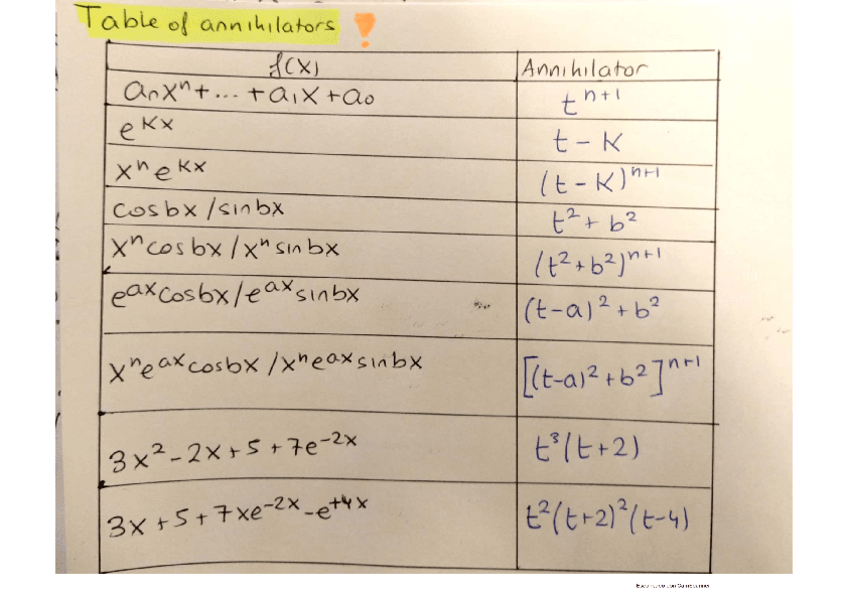 Table of annihilators !
f(x) Annihilator
aₙxⁿ + ... + a₁x + a₀ tⁿ⁺¹
eᴷˣ t - K
xⁿeᴷˣ (t - K)ⁿ⁺¹
cosbx / sinbx t² + b²
xⁿcosbx / xⁿsinbx (t² + b²)ⁿ⁺¹
eᵃˣcosbx / eᵃˣsinbx (t-a)² + b²
xⁿeᵃˣcosbx / xⁿeᵃˣsinbx [(t-a)² + b²]ⁿ⁺¹
3x² - 2x + 5 + 7e⁻²ˣ t³(t+2)
3x + 5 + 7xe⁻²ˣ - e⁺⁴ˣ t²(t+2)²(t-4)
Escaneado con CamScanner